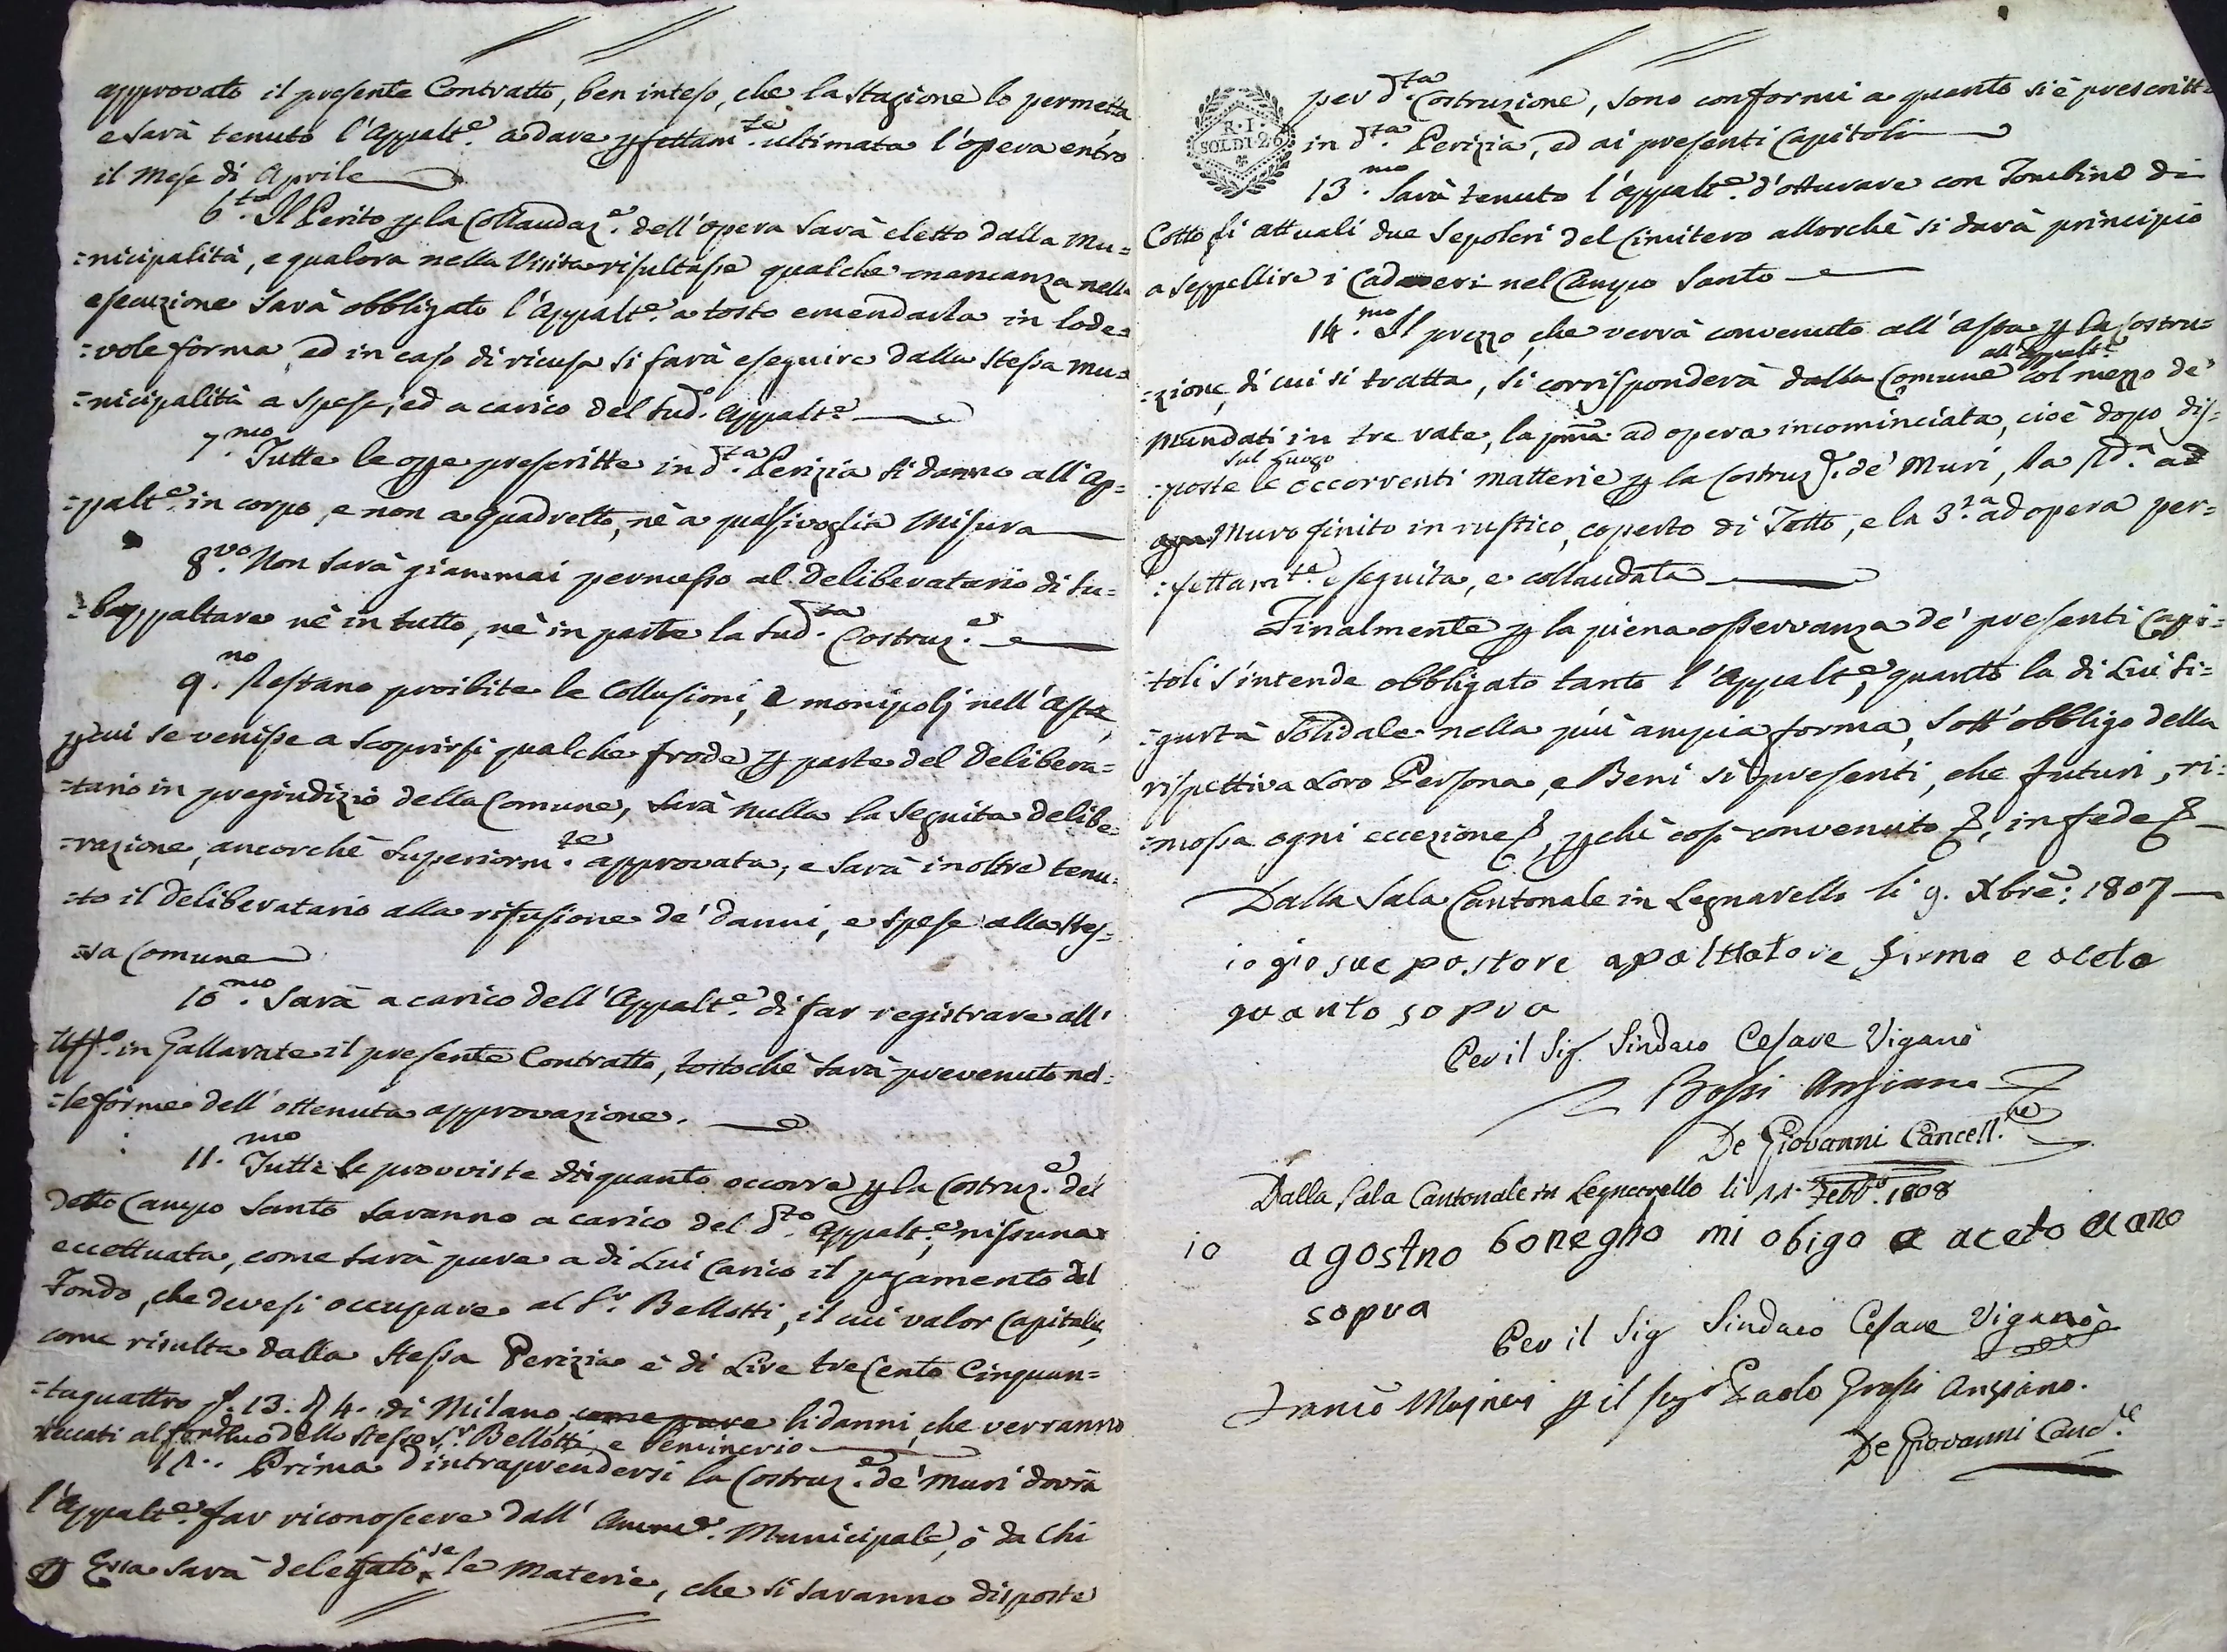 approvato il presente Contratto, ben inteso, che la stagione lo permetta
e sarà tenuto l'Appalt.e a dare pfettam.te ultimata l'opera entro
il Mese di Aprile
6.to Il Perito p la Collaudaz.e dell'opera sarà eletto dalla Mu=
=nicipalità, e qualora nella Visita risultasse qualche mancanza nella
esecuzione sarà obbligato l'Appalt.e a tosto emendarla in lode=
=vole forma, ed in caso di ricusa si farà eseguire dalla stessa Mu=
=nicipalità a spese, ed a carico del sud.o Appalt.e
7.mo Tutte le opе prescritte in d.ta Perizia si danno all'Ap=
=palt.e in corpo, e non a quadretto, nè a qualsivoglia Misura
8.vo Non sarà giammai permesso al Deliberatario di su=
=bappaltare nè in tutto, nè in parte la sud.ta Costruz.e
9.no Restano proibite le Collusioni, e monipolj nell'Asta,
p cui se venisse a scoprirsi qualche frode p parte del Delibera=
=tario in pregiudizio della Comune, sarà nulla la seguita delibe=
=razione, ancorchè superiorm.te approvata, e sarà inoltre tenu=
=to il Deliberatario alla rifusione de' danni, e spese alla stes=
=sa Comune
10.mo Sarà a carico dell'Appalt.e di far registrare all'
Uff.o in Gallarate il presente Contratto, tostochè sarà prevenuto nel=
=le forme dell'ottenuta approvazione.
11.mo Tutte le provviste di quanto occorre p la Costruz.e del
detto Campo Santo saranno a carico del d.to Appalt.e, nissuna
eccettuata, come sarà pure a di Lui Carico il pagamento del
Fondo, che devesi occupare al S.r Bellotti, il cui valor Capitale,
come risulta dalla stessa Perizia è di Lire trecento Cinquan=
=taquattro s. 13. d 4. di Milano come pure li danni, che verranno
reccati al fondo dello stesso S.r Bellotti e
12.. Prima d'intraprendersi la Costruz.e de' Muri dovrà
l'Appalt.e far riconoscere dall' Amme. Municipale, o da Chi
Essa sarà delegato, se le Materie, che si saranno disposte
per d.ta Costruzione, sono conformi a quanto si è prescritto
R. I.
SOLDI 26
in d.ta Perizia, ed ai presenti Capitoli
13.mo Sarà tenuto l'Appalt.e d'otturare con Tombino di
Cotto li attuali due Sepolcri del Cimitero allorchè si darà principio
a seppellire i Cadaveri nel Campo Santo
14.mo Il prezzo, che verrà convenuto all'Asta p la Costru=
=zione, di cui si tratta, si corrisponderà dalla Comune all'Appalt.e col mezzo de'
Mandati in tre rate, la pma. ad opera incominciata, cioè dopo dis=
=poste sul Luogo le occorrenti matterie p la Costruz.e de' Muri, la sd.a ad
Muro finito in rustico, coperto di Tetto, e la 3.za ad opera per=
=fettam.te eseguita, e collaudata
Finalmente p la piena osservanza de' presenti Capi=
=toli s'intende obbligato tanto l'Appalt.e, quanto la di Lui si=
=gurtà solidale nella più ampia forma, sott'obbligo della
rispettiva Loro Persona, e Beni si presenti, che futuri, ri=
=mossa ogni eccezione &, pchè così convenuto &, in fede &
Dalla Sala Cantonale in Legnarello li 9. Xbrē: 1807
io giosue postore apolttatore firmo e aceto
quanto sopra
Per il Sig. Sindaco Cesare Viganò
Bossi Anziano
De Giovanni Cancell.re
Dalla Sala Cantonale in Legnarello li 11. Febb.o 1808
io agostno bonegho mi obigo e aceto
sopra
Per il Sig Sindaco Cesare Viganò
p il Sig.r Paolo Anziano.
De Giovanni Canc.re